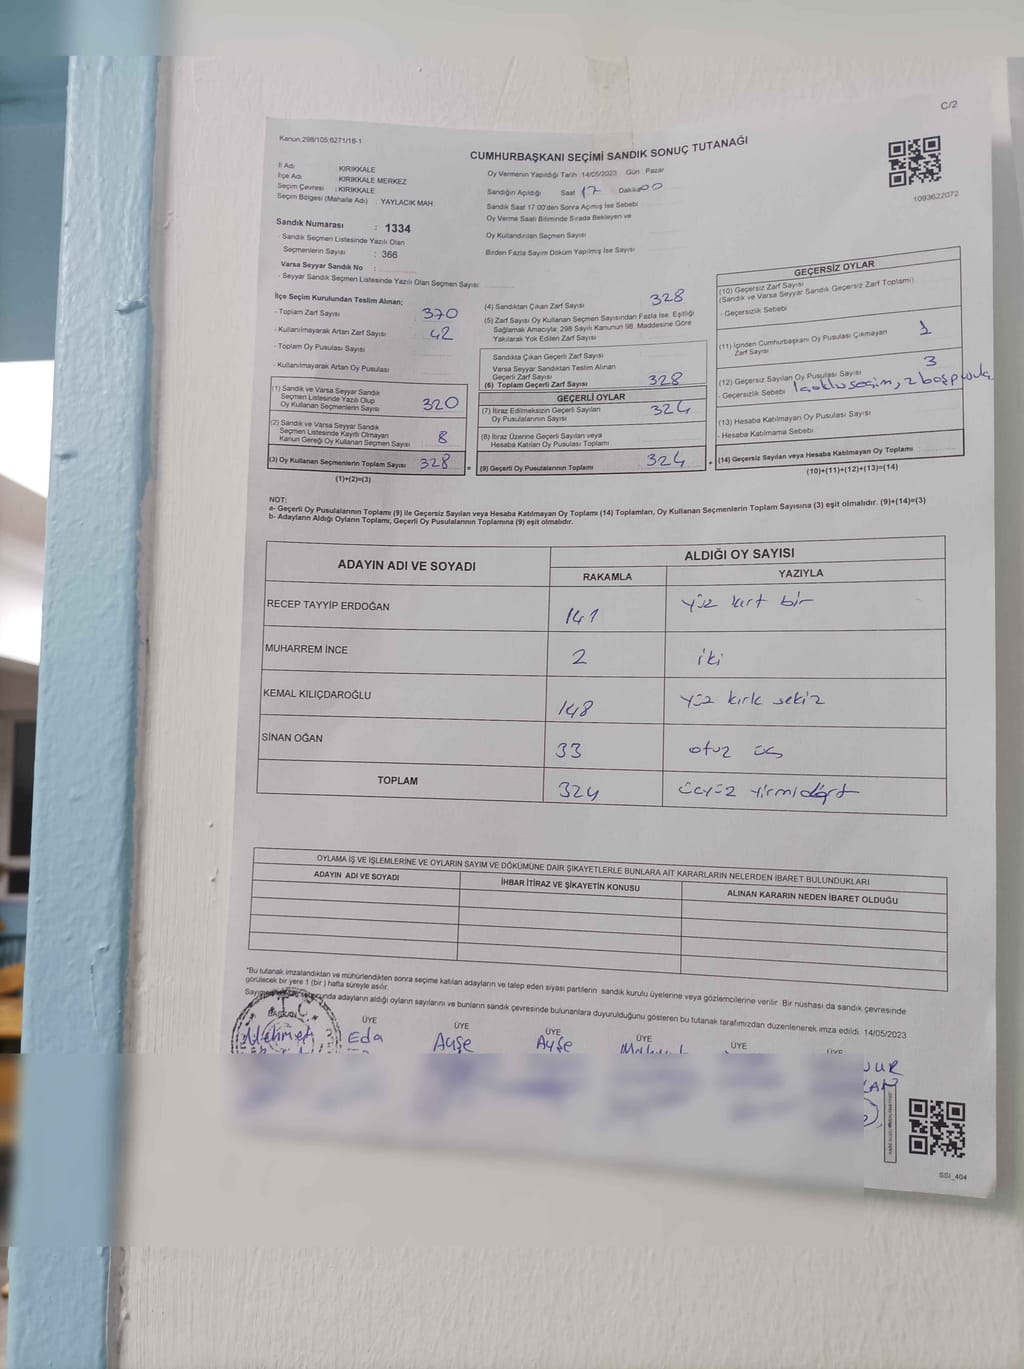 C/2
Kanun:298/105;6271/16-1
CUMHURBAŞKANI SEÇİMİ SANDIK SONUÇ TUTANAĞI
1093622072
İl Adı : KIRIKKALE
İlçe Adı : KIRIKKALE MERKEZ
Seçim Çevresi : KIRIKKALE
Seçim Bölgesi (Mahalle Adı) : YAYLACIK MAH
Sandık Numarası : 1334
- Sandık Seçmen Listesinde Yazılı Olan
Seçmenlerin Sayısı : 366
Varsa Seyyar Sandık No :
- Seyyar Sandık Seçmen Listesinde Yazılı Olan Seçmen Sayısı:
Oy Vermenin Yapıldığı Tarih 14/05/2023 Gün Pazar
Sandığın Açıldığı Saat 17 Dakika 00
Sandık Saat 17:00'den Sonra Açımış İse Sebebi
Oy Verme Saati Bitiminde Sırada Bekleyen ve
Oy Kullandırılan Seçmen Sayısı
Birden Fazla Sayım Döküm Yapılmış İse Sayısı
İlçe Seçim Kurulundan Teslim Alınan;
- Toplam Zarf Sayısı 370
- Kullanılmayarak Artan Zarf Sayısı 42
- Toplam Oy Pusulası Sayısı
- Kullanılmayarak Artan Oy Pusulası
(1) Sandık ve Varsa Seyyar Sandık
Seçmen Listesinde Yazılı Olup
Oy Kullanan Seçmenlerin Sayısı 320
(2) Sandık ve Varsa Seyyar Sandık
Seçmen Listesinde Kayıtlı Olmayan
Kanun Gereği Oy Kullanan Seçmen Sayısı 8
(3) Oy Kullanan Seçmenlerin Toplam Sayısı 328 =
(1)+(2)=(3)
(4) Sandıktan Çıkan Zarf Sayısı 328
(5) Zarf Sayısı Oy Kullanan Seçmen Sayısından Fazla İse, Eşitliği
Sağlamak Amacıyla; 298 Sayılı Kanunun 98. Maddesine Göre
Yakılarak Yok Edilen Zarf Sayısı
Sandıkta Çıkan Geçerli Zarf Sayısı
Varsa Seyyar Sandıktan Teslim Alınan
Geçerli Zarf Sayısı
(6) Toplam Geçerli Zarf Sayısı 328
GEÇERLİ OYLAR
(7) İtiraz Edilmeksizin Geçerli Sayılan
Oy Pusulalarının Sayısı 324
(8) İtiraz Üzerine Geçerli Sayılan veya
Hesaba Katılan Oy Pusulası Toplamı
(9) Geçerli Oy Pusulalarının Toplamı 324 +
GEÇERSİZ OYLAR
(10) Geçersiz Zarf Sayısı
(Sandık ve Varsa Seyyar Sandık Geçersiz Zarf Toplamı)
- Geçersizlik Sebebi
(11) İçinden Cumhurbaşkanı Oy Pusulası Çıkmayan
Zarf Sayısı 1
(12) Geçersiz Sayılan Oy Pusulası Sayısı 3
- Geçersizlik Sebebi 1 çoklu seçim, 2 boş pusula
(13) Hesaba Katılmayan Oy Pusulası Sayısı
- Hesaba Katılmama Sebebi
(14) Geçersiz Sayılan veya Hesaba Katılmayan Oy Toplamı
(10)+(11)+(12)+(13)=(14)
NOT:
a- Geçerli Oy Pusulalarının Toplamı (9) ile Geçersiz Sayılan veya Hesaba Katılmayan Oy Toplamı (14) Toplamları, Oy Kullanan Seçmenlerin Toplam Sayısına (3) eşit olmalıdır. (9)+(14)=(3)
b- Adayların Aldığı Oyların Toplamı, Geçerli Oy Pusulalarının Toplamına (9) eşit olmalıdır.
ADAYIN ADI VE SOYADI
ALDIĞI OY SAYISI
RAKAMLA YAZIYLA
RECEP TAYYİP ERDOĞAN 141 yüz kırt bir
MUHARREM İNCE 2 iki
KEMAL KILIÇDAROĞLU 148 yüz kırk sekiz
SİNAN OĞAN 33 otuz üç
TOPLAM 324 üçyüz yirmidört
OYLAMA İŞ VE İŞLEMLERİNE VE OYLARIN SAYIM VE DÖKÜMÜNE DAİR ŞİKAYETLERLE BUNLARA AİT KARARLARIN NELERDEN İBARET BULUNDUKLARI
ADAYIN ADI VE SOYADI İHBAR İTİRAZ VE ŞİKAYETİN KONUSU ALINAN KARARIN NEDEN İBARET OLDUĞU
"Bu tutanak imzalandıktan ve mühürlendikten sonra seçime katılan adayların ve talep eden siyasi partilerin sandık kurulu üyelerine veya gözlemcilerine verilir. Bir nüshası da sandık çevresinde
görülecek bir yere 1 (bir) hafta süreyle asılır.
adayların aldığı oyların sayılarını ve bunların sandık çevresinde bulunanlara duyurulduğunu gösteren bu tutanak tarafımızdan düzenlenerek imza edildi. 14/05/2023
T.C.
BAŞKAN ÜYE ÜYE ÜYE ÜYE ÜYE ÜYE
Mehmet Eda Ayşe Ayşe
SSI_404